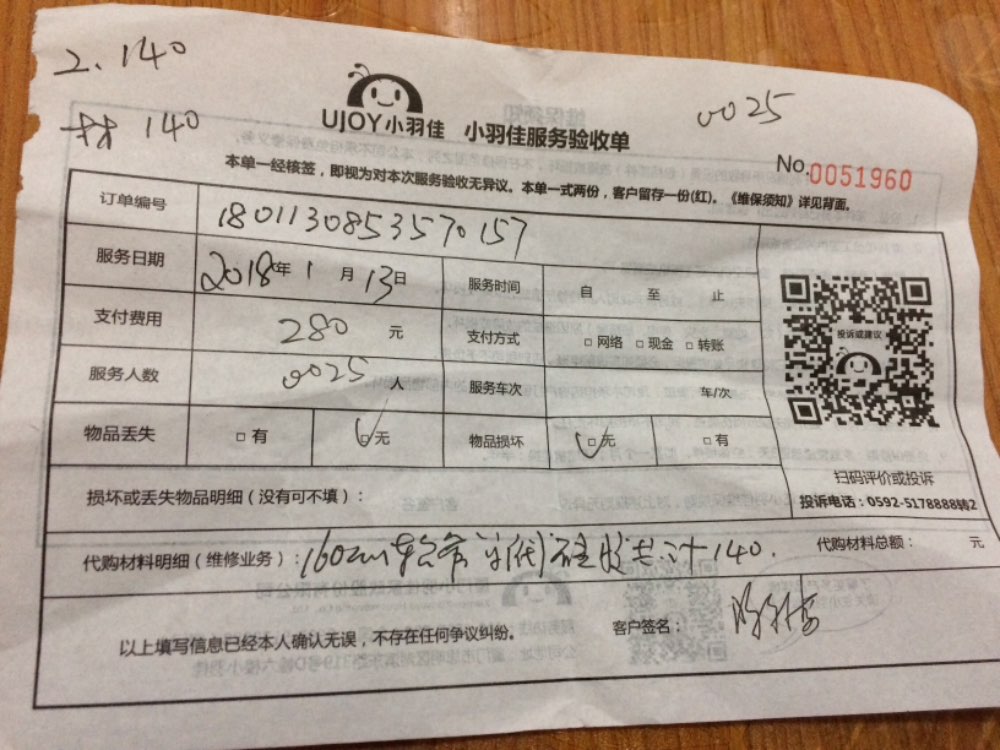 2、140
材 140
0025
UJOY小羽佳 小羽佳服务验收单
No.0051960
本单一经核签，即视为对本次服务验收无异议。本单一式两份，客户留存一份(红)。《维保须知》详见背面。
订单编号 180113085357 0157
服务日期 2018年1月13日 服务时间 自 至 止
支付费用 280 元 支付方式 □网络 □现金 □转账
服务人数 0025 人 服务车次 车/次
物品丢失 □有 ☑无 物品损坏 ☑无 □有
投诉或建议
扫码评价或投诉
投诉电话：0592-5178888转2
损坏或丢失物品明细（没有可不填）：
代购材料明细（维修业务）：160cm 硅胶共计140. 代购材料总额： 元
以上填写信息已经本人确认无误，不存在任何争议纠纷。 客户签名：